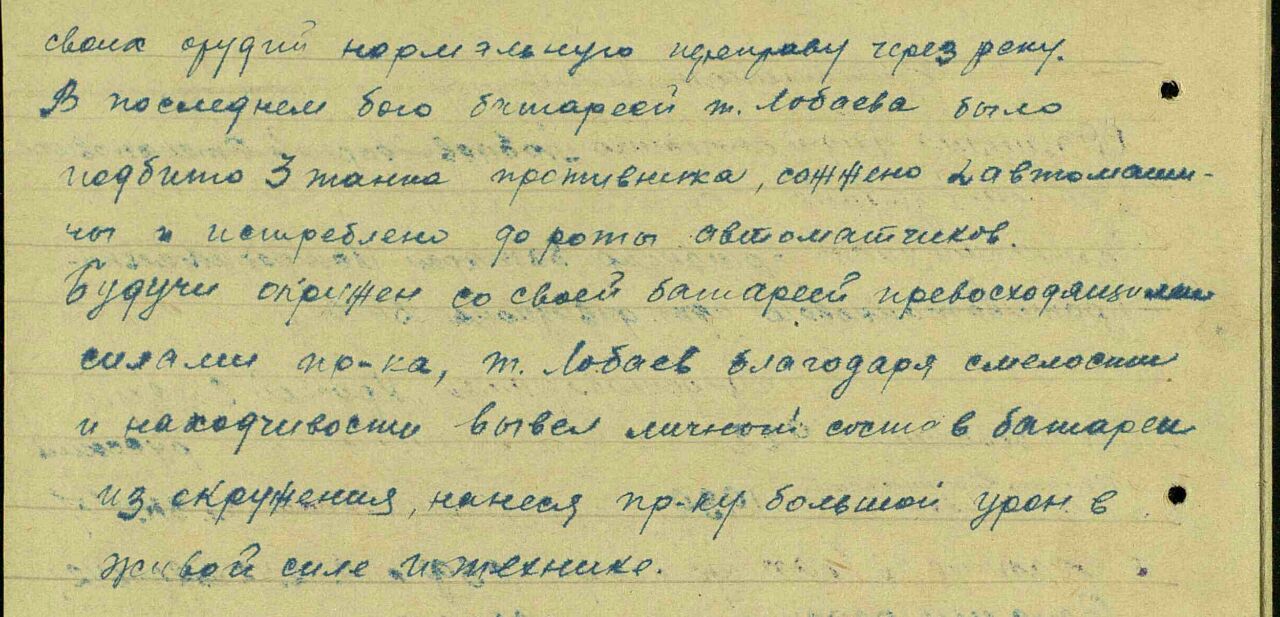 своих орудий нормальную переправу через реку.
В последнем бою батареей т. Лобаева было
подбито 3 танка противника, сожжено 2 автомаши-
ны и истреблено до роты автоматчиков.
Будучи окружен со своей батареей превосходящими
силами пр-ка, т. Лобаев благодаря смелости
и находчивости вывел личной состав батареи
из окружения, нанеся пр-ку большой урон в
живой силе и технике.